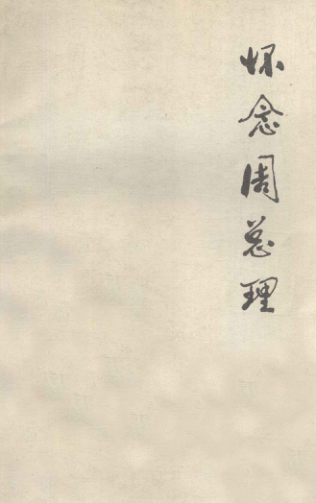 怀念周总理